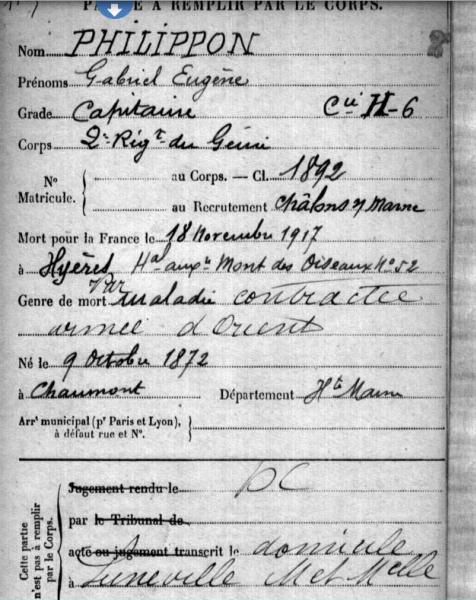 PARTIE A REMPLIR PAR LE CORPS.
Nom PHILIPPON
Prénoms Gabriel Eugène
Grade Capitaine Cie H-6
Corps 2e Rég't du Génie
N° Matricule. { au Corps. — Cl. 1892
au Recrutement Châlons s/ Marne
Mort pour la France le 18 Novembre 1917
à Hyères Var Hal auxre Mont des Oiseaux N° 52
Genre de mort maladie contractée
armée d'Orient
Né le 9 Octobre 1872
à Chaumont Département Hte Marne
Arrt municipal (pr Paris et Lyon), à défaut rue et N°. }
Cette partie n'est pas à remplir par le Corps.
Jugement rendu le DC
par le Tribunal de
acte ou jugement transcrit le domicile
à Luneville M et Melle